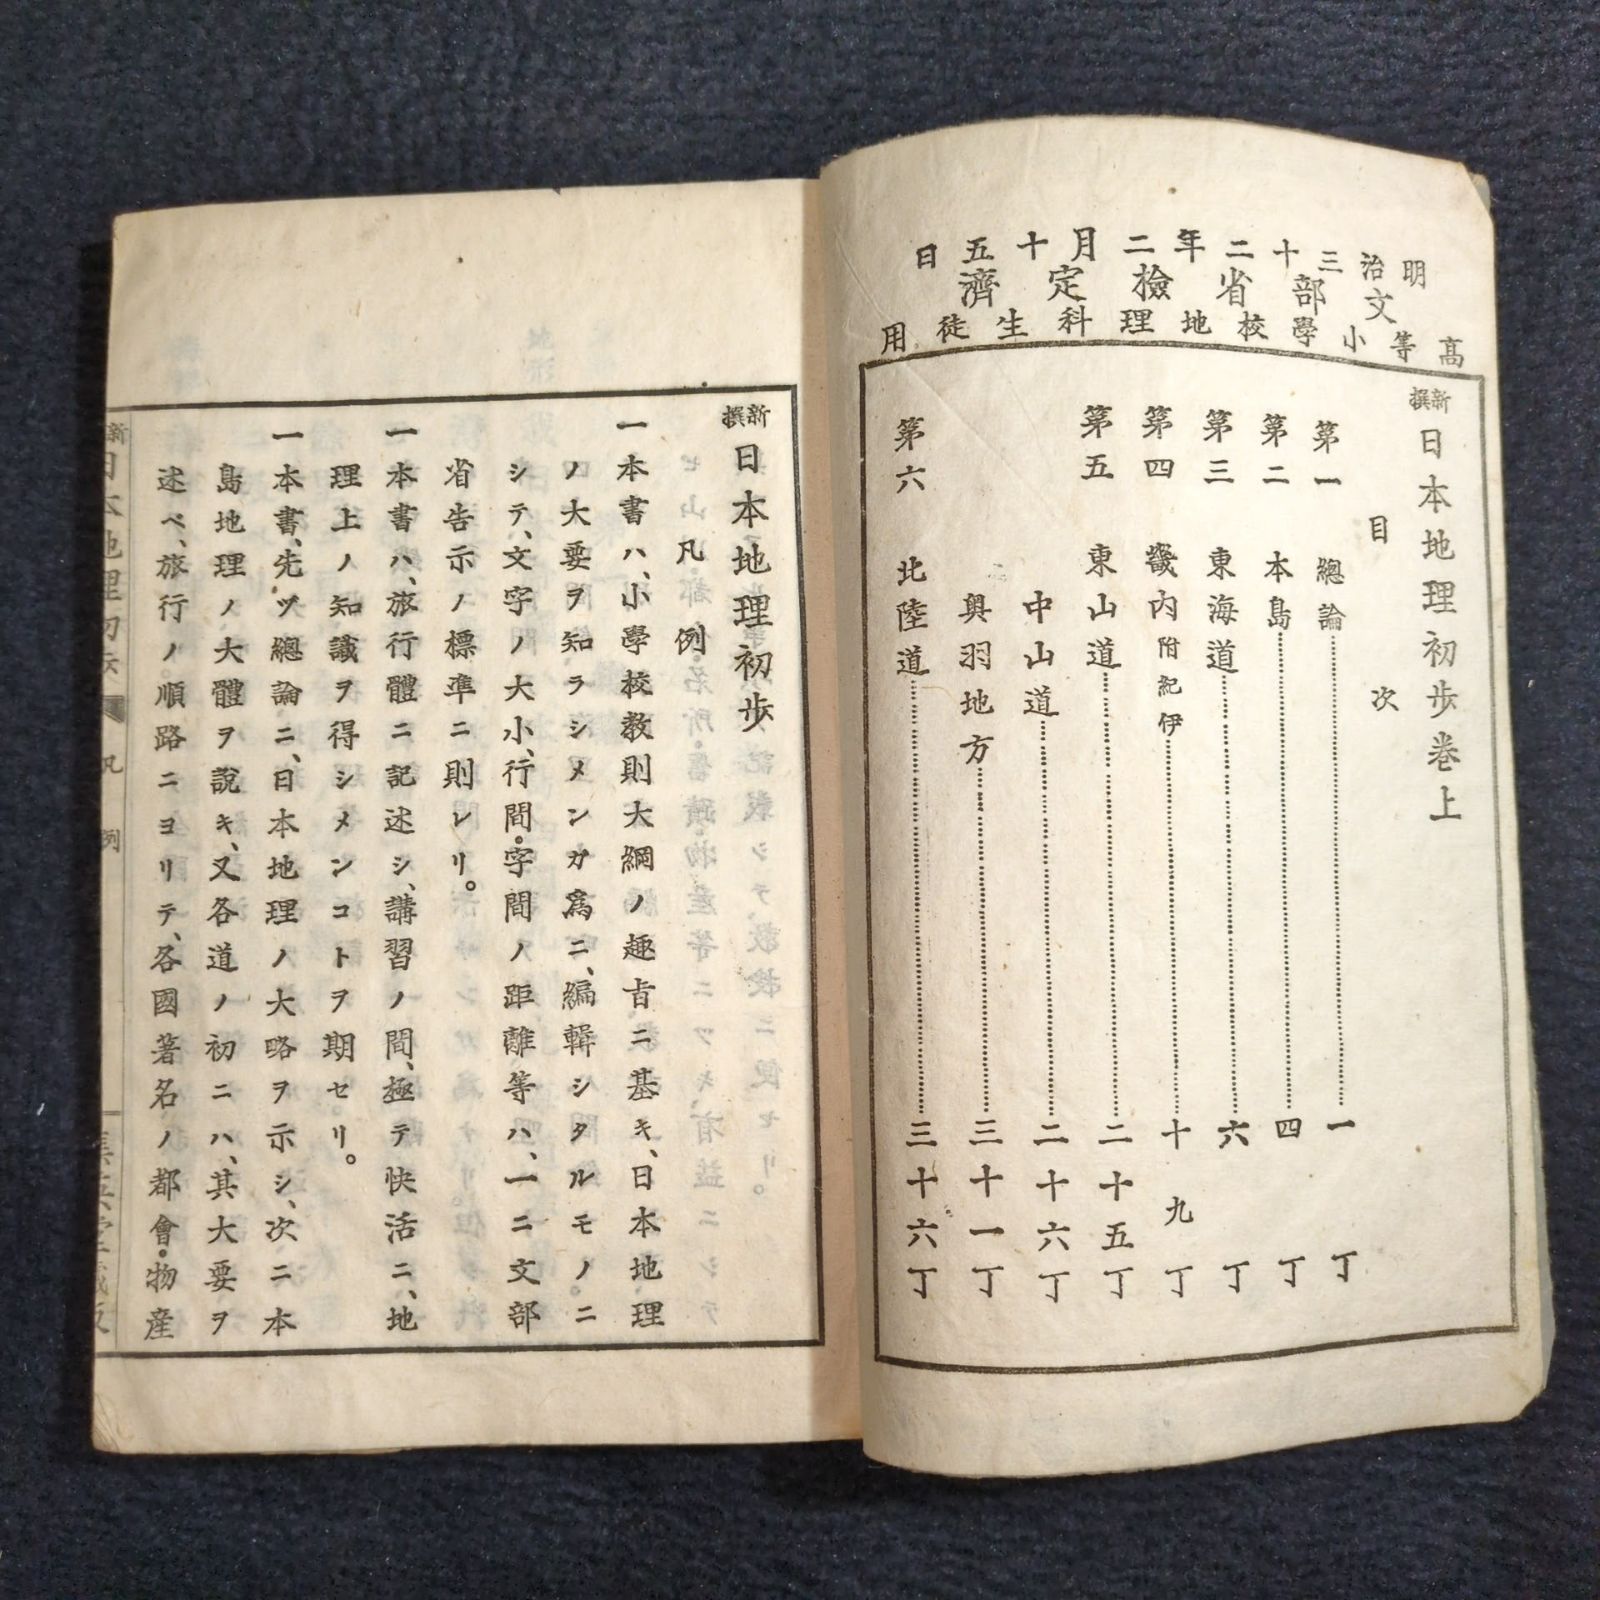 明治三十二年二月十五日
文部省檢定濟
高等小學校地理科生徒用
新撰日本地理初歩巻上
目次
第一 總論 一丁
第二 本島 四丁
第三 東海道 六丁
第四 畿内附紀伊 十九丁
第五 東山道 二十五丁
中山道 二十六丁
奥羽地方 三十一丁
第六 北陸道 三十六丁
新撰日本地理初歩
凡例
一本書ハ、小學校教則大綱ノ趣旨ニ基キ、日本地理
ノ大要ヲ知ラシメンガ爲ニ、編輯シタルモノ。ニ
シテ、文字ノ大小、行間・字間ノ距離等ハ、一ニ文部
省告示ノ標準ニ則レリ。
一本書ハ、旅行體ニ記述シ、講習ノ間、極テ快活ニ、地
理上ノ知識ヲ得シメンコトヲ期セリ。
一本書、先ヅ總論ニ、日本地理ノ大略ヲ示シ、次ニ本
島地理ノ大體ヲ說キ、又各道ノ初ニハ、其大要ヲ
述ベ、旅行ノ順路ニヨリテ、各國著名ノ都會・物産
新日本地理初歩 凡例